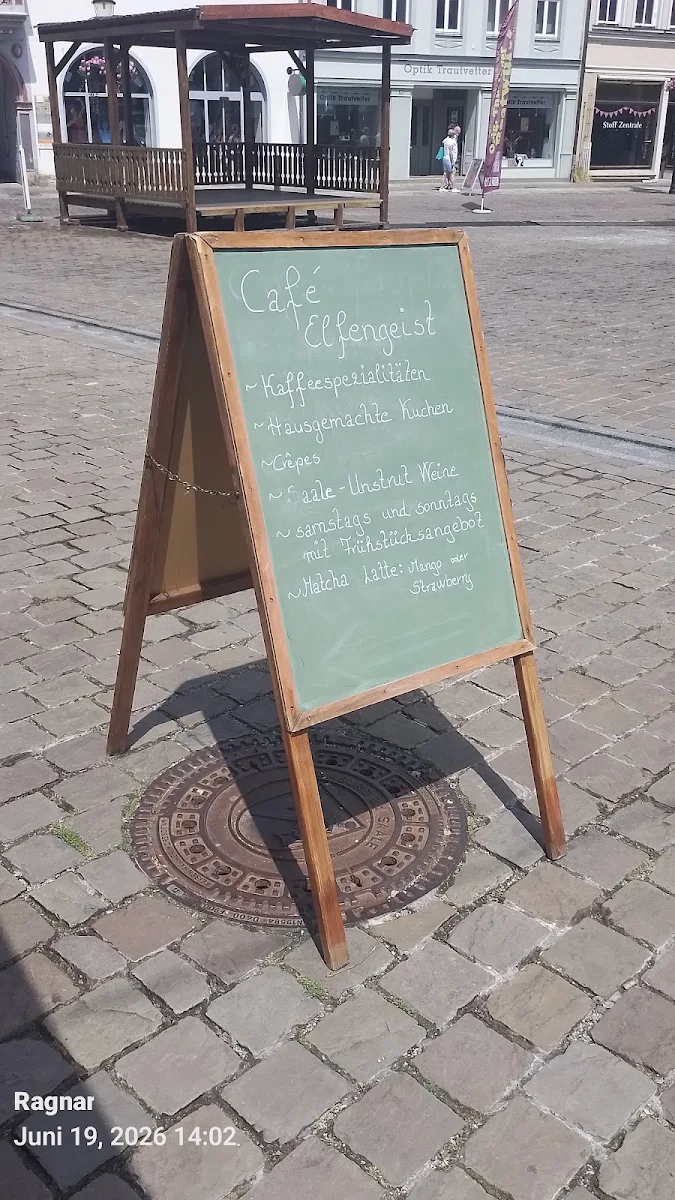 Optik Trautvetter
Stoff Zentrale
Café
Elfengeist
~ Kaffeespezialitäten
~ Hausgemachte Kuchen
~ Crêpes
~ Saale-Unstrut Weine
~ samstags und sonntags
mit Frühstücksangebot
~ Matcha Latte: Mango oder
Strawberry
SAALE
D400
Ragnar
Juni 19, 2026 14:02